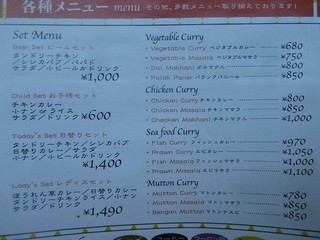 各種メニュー menu その他、多数メニュー取り揃えております!
Set Menu
Beer Set ビールセット
タンドリーチキン
/シシカバブ/パパド
サラダ/小ビールかドリンク
¥1,000
Child Set お子様セット
チキンカレー
小ナン/小ライス
サラダ/ドリンク
¥600
Today's Set 日替りセット
タンドリーチキン/シシカバブ
日替りカレー/サラダ
小ナン/小ビールかドリンク
¥1,400
Lady's Set レディスセット
ほうれん草カレー/日替りカレー
タンドリーチキンライス/小ナン
サラダ/ドリンク
¥1,490
Vegetable Curry
Vegetable Curry ベジタブルカレー ¥680
Vegetable Masala ベジタブルマサラ ¥750
Dal Makhani ダルマクニ ¥690
Palak Paner パラックパニール ¥850
Chicken Curry
Chicken Curry チキンカレー ¥800
Chicken Masala チキンマサラ ¥850
Checken Makhani チキンマクニ ¥1,000
Sea food Curry
Fish Curry フィッシュカレー ¥970
Prawn Curry エビカレー ¥1,100
Fish Masala フィッシュマサラ
Prawn Masala エビマサラ ¥1,100
Mutton Curry
Mutton Curry マトンカレー ¥780
Mutton Masala マトンマサラ ¥850
Bengan Mutton マトンナスビ ¥850